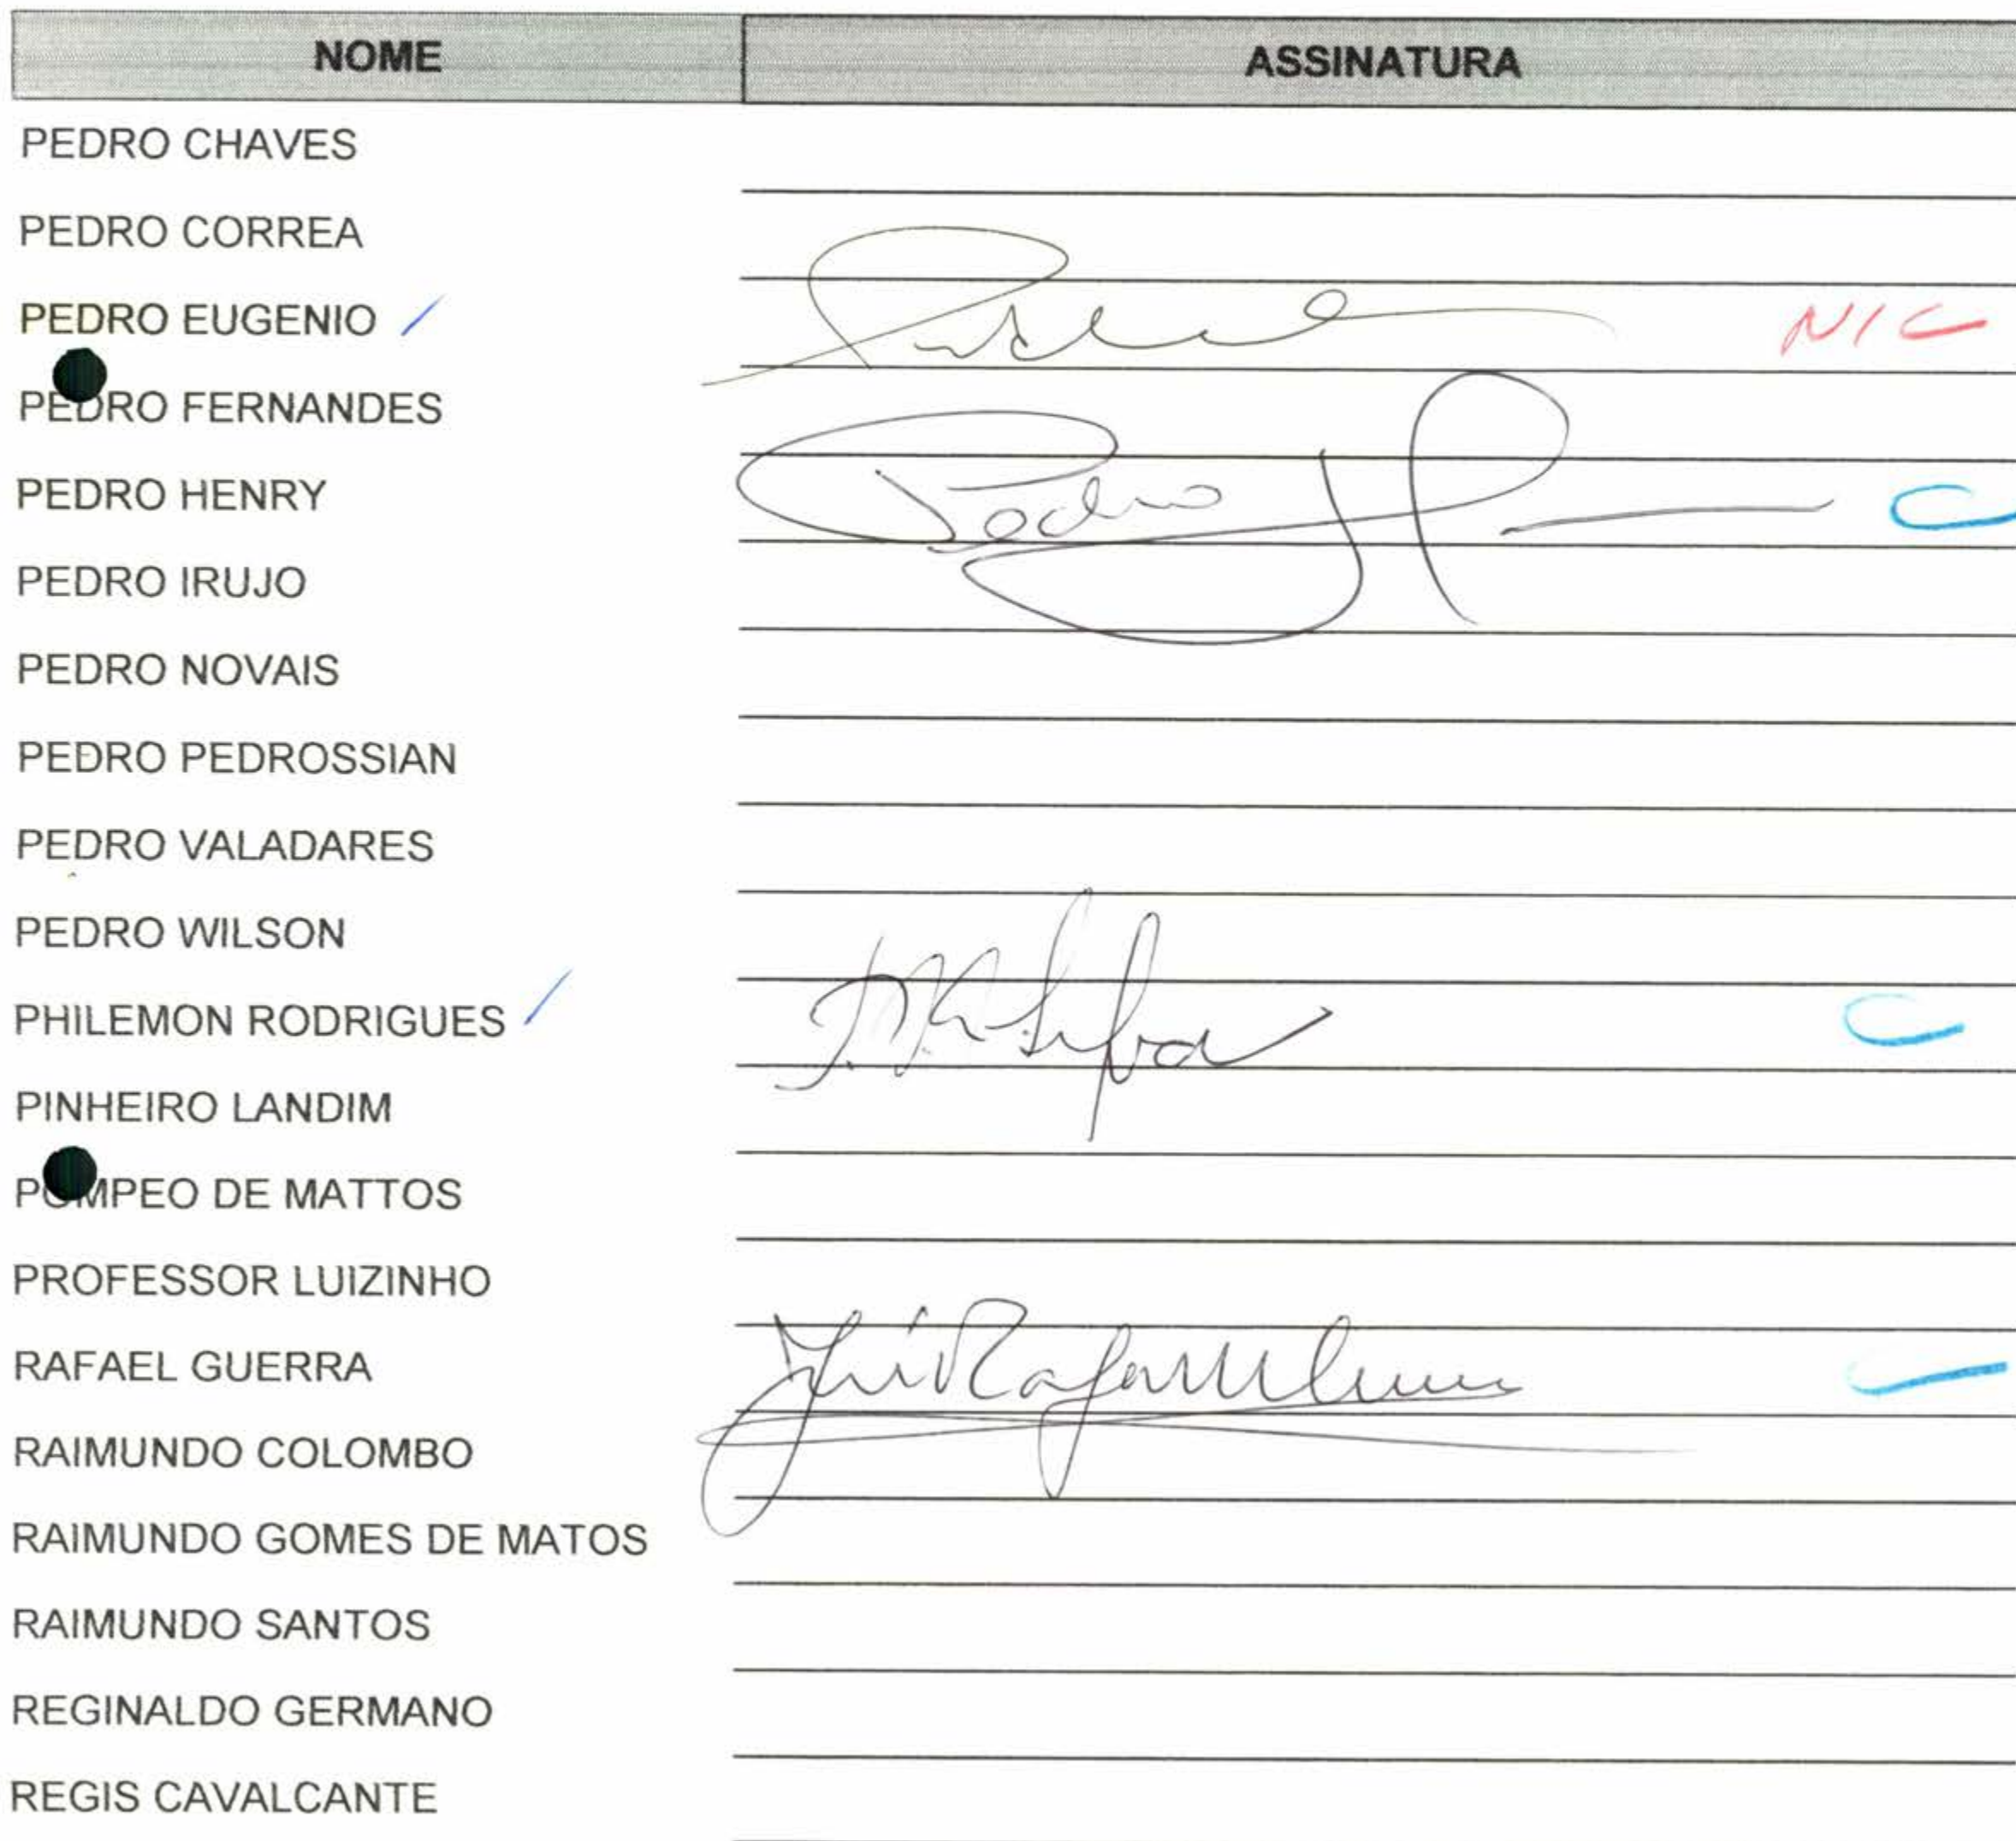 NOME ASSINATURA
PEDRO CHAVES
PEDRO CORREA
PEDRO EUGENIO N/C
PEDRO FERNANDES
PEDRO HENRY Pedro C
PEDRO IRUJO
PEDRO NOVAIS
PEDRO PEDROSSIAN
PEDRO VALADARES
PEDRO WILSON
PHILEMON RODRIGUES C
PINHEIRO LANDIM
POMPEO DE MATTOS
PROFESSOR LUIZINHO
RAFAEL GUERRA
RAIMUNDO COLOMBO
RAIMUNDO GOMES DE MATOS
RAIMUNDO SANTOS
REGINALDO GERMANO
REGIS CAVALCANTE